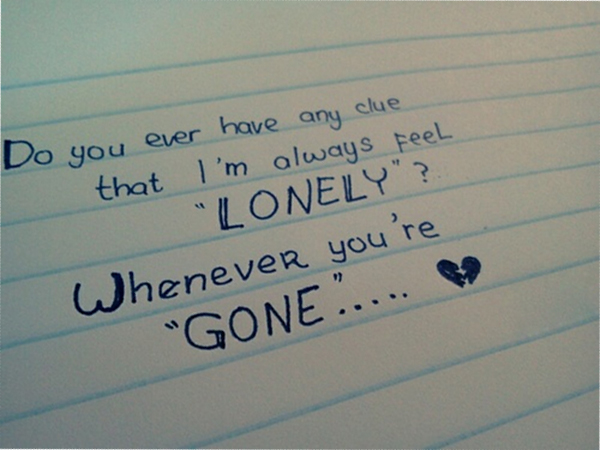 Do you ever have any clue
that I'm always FeeL
"LONELY"?
WheneveR you're
"GONE".....